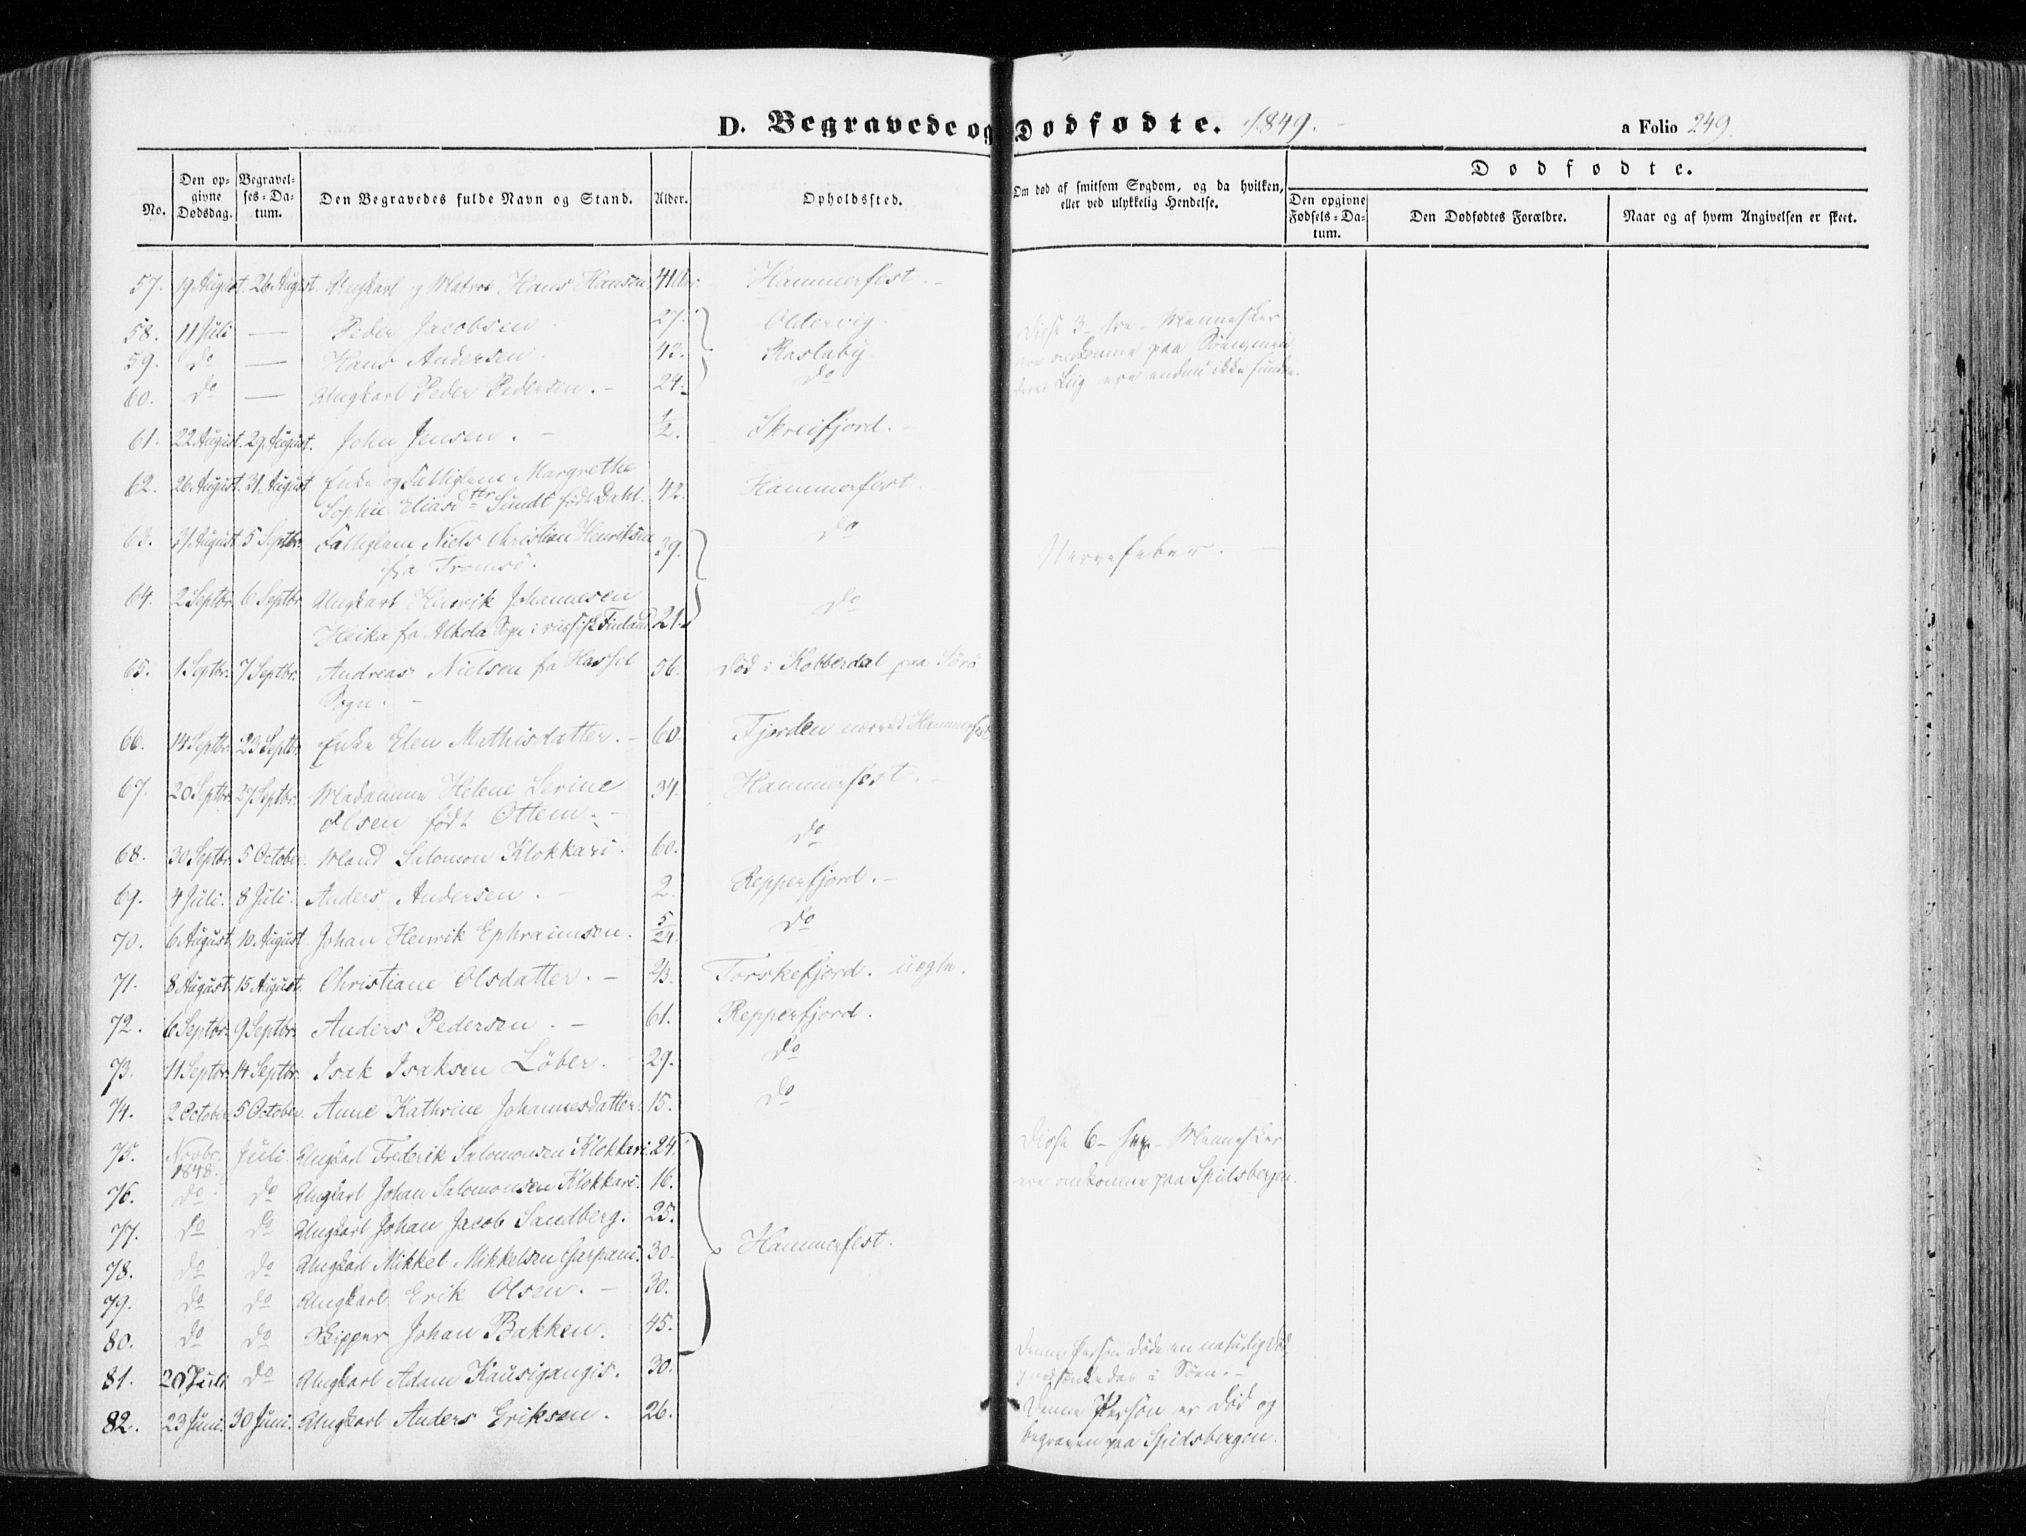 D. Begravede og Dødfødte. 1849. a Folio 249.
No. Den opgivne Dødsdag. Begravelses-Datum. Den Begravedes fulde Navn og Stand. Alder. Opholdssted. Om død af smitsom Sygdom, og da hvilken, eller ved ulykkelig Hendelse. Dødfødte.
Den opgivne Fødsels-Datum. Den Dødfødtes Forældre. Naar og af hvem Angivelsen er skeet.
57. 19 August. 26 August. Ungkarl og Matros Hans Hansen 41 Hammerfest.
58. 11 Juli — Peder Jacobsen 27. Oldervig. Disse 3- tre- Mennesker
59. do — Hans Andersen. 43. ere omkomne paa
60. do — Ungkarl Peder Pedersen. 24. do deres Liig ere endnu ikke funden.
61. 22 August. 29 August. John Jensen. 1/2. Skreifjord.
62. 26 August. 31 August Enke og Fattiglem Margrethe
Sophie Eliasdtter Sundt født Dahl. 42. Hammerfest.
63. 31 August 5 Septbr. Fattiglem Niels Christian Henriksen
fra Tromsø. 39. do Nervefeber.
64. 2 Septbr. 6 Septbr. Ungkarl Henrik Johannesen
Heika fra Alkola Sogn i russisk Finland 21. do
65. 1 Septbr. 7 Septbr. Andreas Nielsen fra Hassel
Sogn. 56. død i Kobberdal paa Sørø
66. 14 Septbr. 23 Septbr. Enke Elen Mathisdatter. 60. Fjorden Hammerfest
67. 20 Septbr. 27 Septbr. Madamme Helene Serine
Olsen født Ottem. 34. Hammerfest.
68. 30 Septbr. 5 October. Mand Salomon Klokkari. 60. do
69. 4 Juli. 8 Juli. Anders Andersen. 2. Repperfjord.
70. 6 August. 10. August Johan Henrik Ephraimsen. 5/24. do
71. 8 August. 15 August. Christiane Olsdatter. 2/3. Torskefjord. uægte.
72. 6 Septbr. 9 Septbr. Anders Pedersen. 61. Repperfjord.
73. 11 Septbr. 14 Septbr. Isak Isaksen Løber. 29. do
74. 2 October 5 October. Anne Kathrine Johannesdatter. 15. do
75. Novbr. 1848. Juli. Ungkarl Frederik Salomonsen Klokkari 24. Disse 6- sex- Mennesker
76. do do Ungkarl Johan Salomonsen Klokkari. 16. ere omkomne paa Spidsbergen.
77. do do Ungkarl Johan Jacob Sandberg. 25.
78. do do Ungkarl Mikkel Mikkelsen 30. Hammerfest.
79. do do Ungkarl Erik Olsen. 30.
80. do do Skipper Johan Bakken. 45.
81. 20 Juli do Ungkarl Adam 30. Denne Person døde en naturlig Død
og nedsænkedes i Søen.
82. 23 Juni. 30 Juni. Ungkarl Anders Eriksen. 26. Denne Person er død og
begraven paa Spidsbergen.